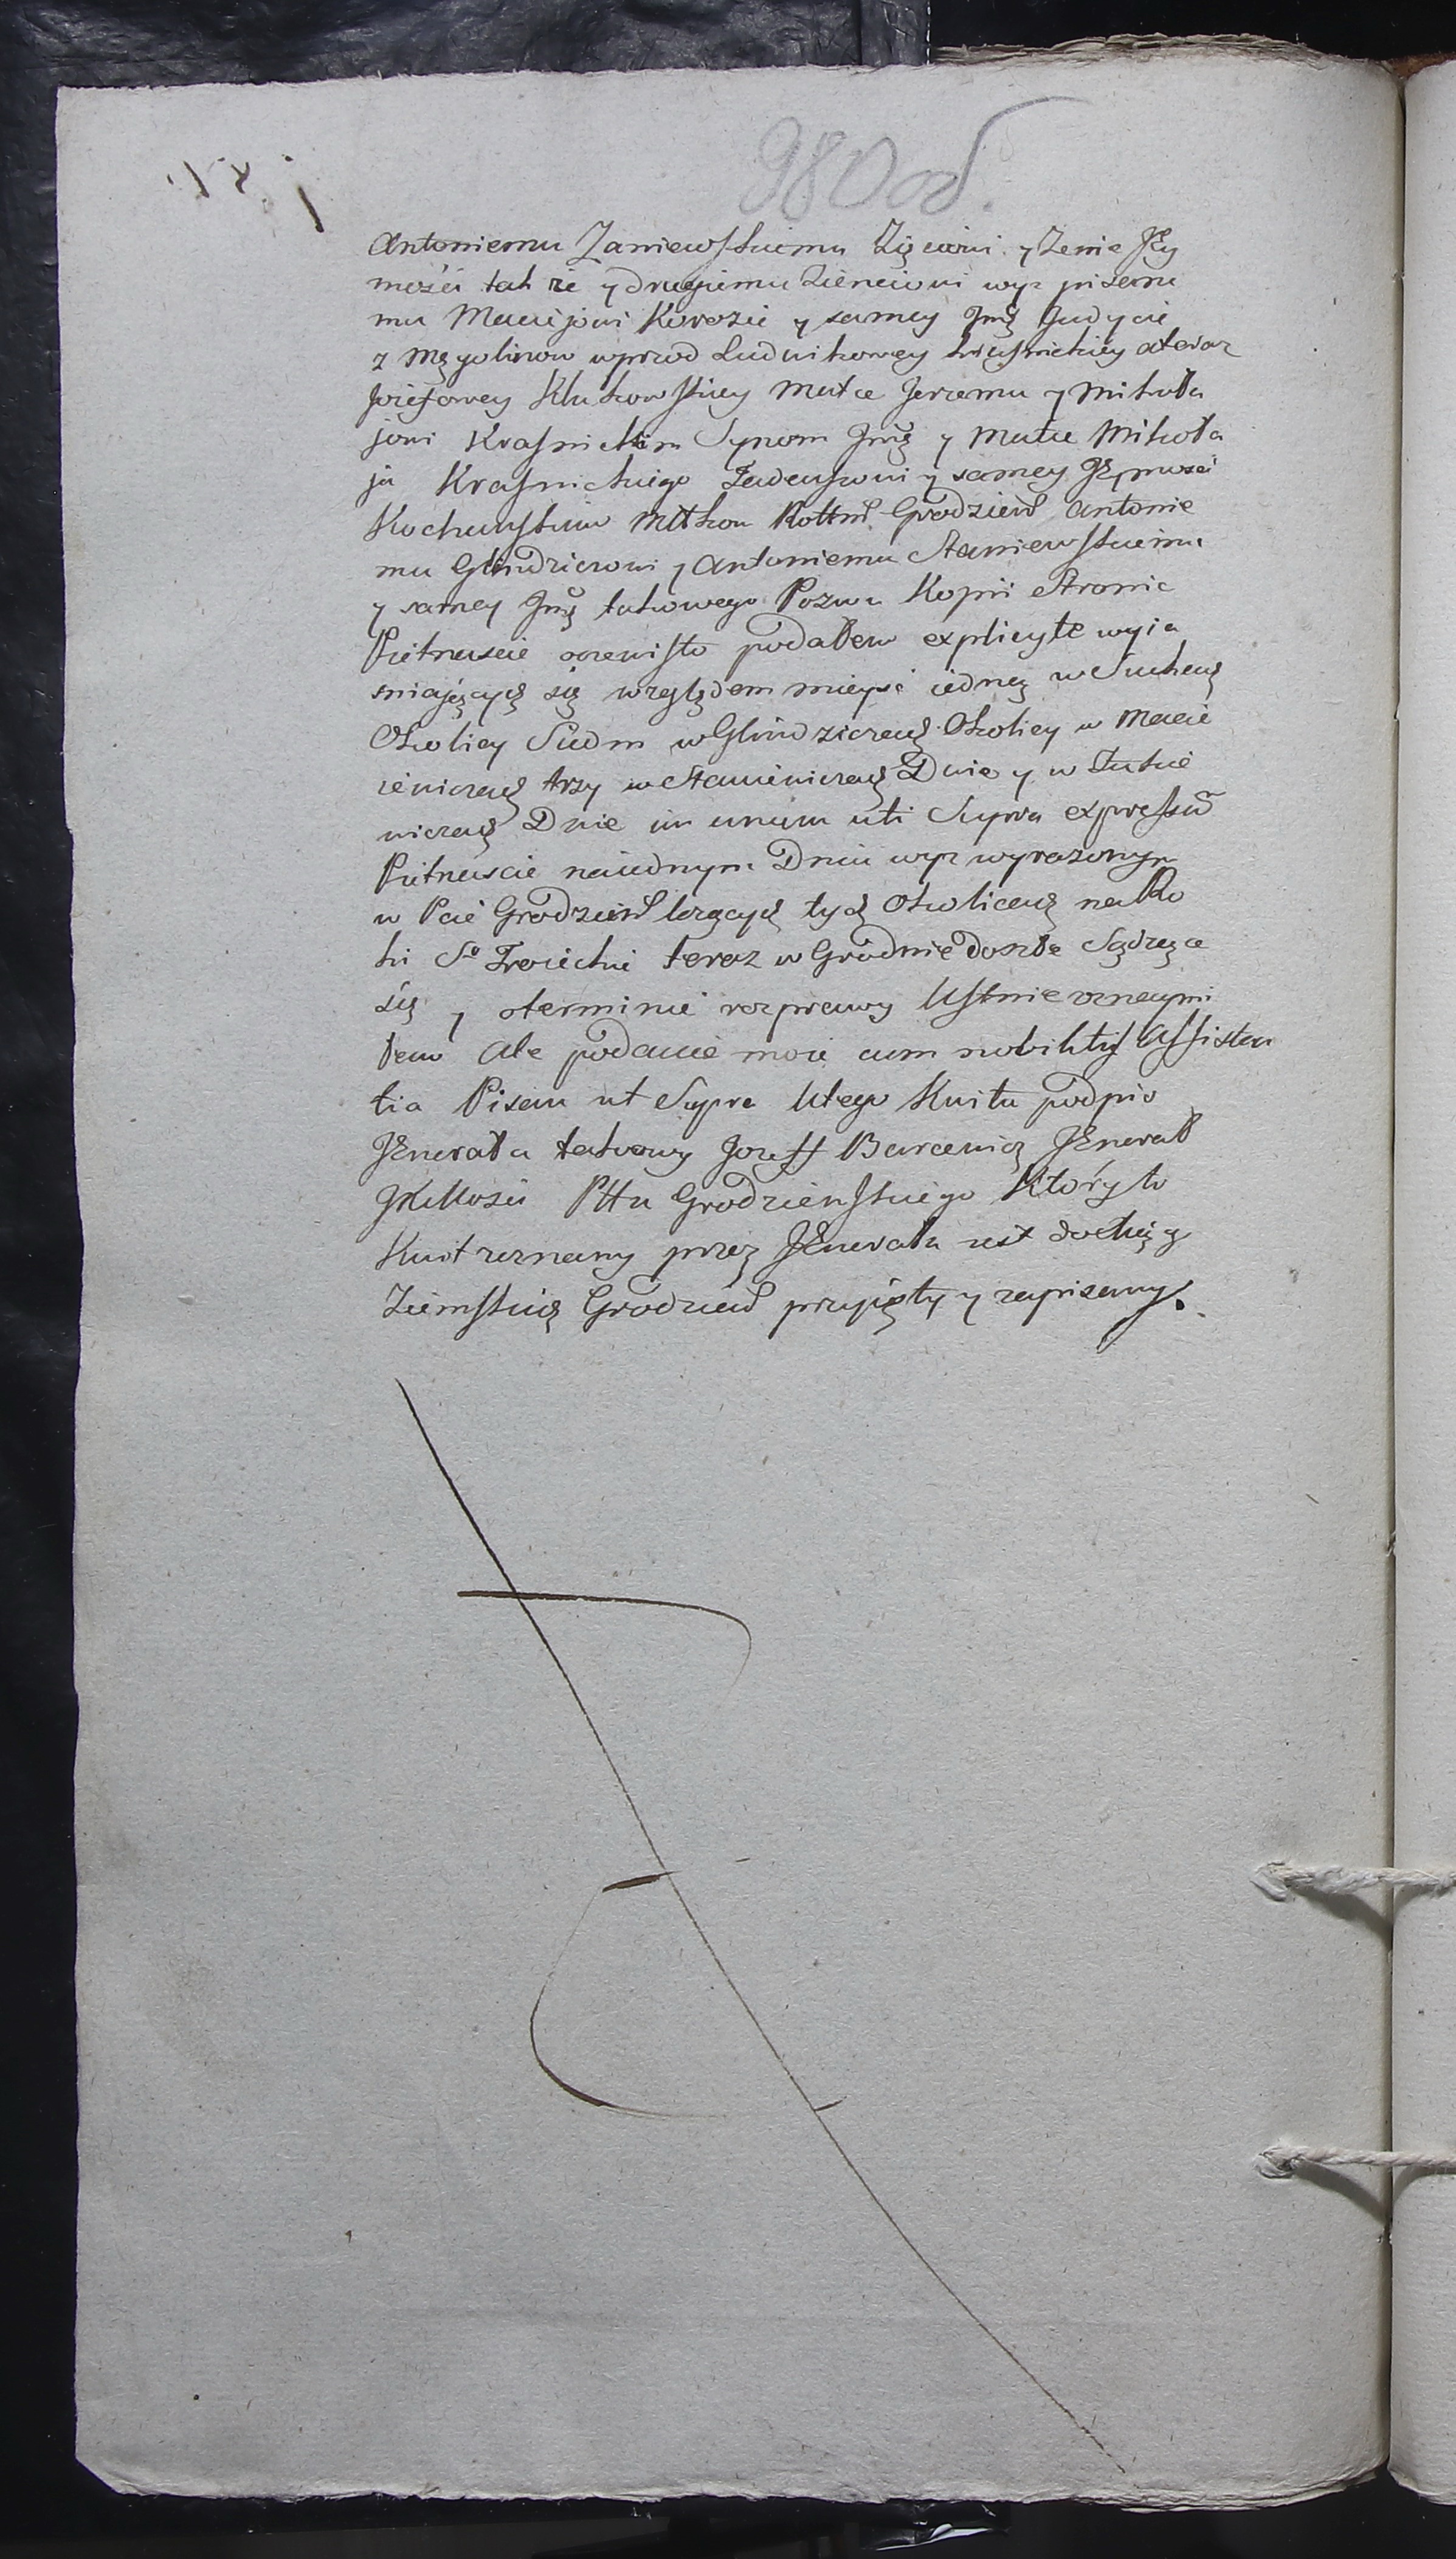 980 об.
Antoniemu Zaniewskiemu Zięciowi y Zenie Jey
mości tak że y drugiemu Zienciowi wyż pisanu
mu Maciejowi Korozie y samey Jmę Judycie
z Męgolinow wprzod Ludwikowey Kraśnickiey a teraz
Jozefowey Klukowskiey Matce Jerzemu y Mikoła
jowi Kraśnickim Synom Jmę y Matce Mikoła
ja Kraśnickiego Tadeuszowi y samey Jeymości
Kochanskim Mttkom Rottm Grodzień Antonie
mu Glindziczowi y Antoniemu Staniewskiemu
y samey Jmę takowego Pozwu Kopii Stronie
Pietnaście oczewisto podałem explicyte wyia
sniaiących się względem mieysc iedney w Suchey
Okolicy Siedm w Glindziczach Okolicy w Macie
iewiczach trzy w Staniewiczach Dwie y w
wiczach Dwie in unum uti Supra expressū
Pietnaście na iednym Dniu wyż wyrazonym
w Pcie Grodzień leżących tych Okolicach na Ro
ki So Troieckie teraz w Grodnie Doszłe Sądzące
się y o terminie rozprawy Ustnie oznaymi
łem Ale podanie moie cum nobilitū Assisten
tia Pisan ut Supra U tego Kwitu podpis
Jenerała takowy Jozeff Barcewicz Jenerał
JKMości Pttu Grodzienskiego Który to
Kwit zeznany przez Jenerała iest do Xiąg
Ziemskich Grodzień przyięty y zapisany.